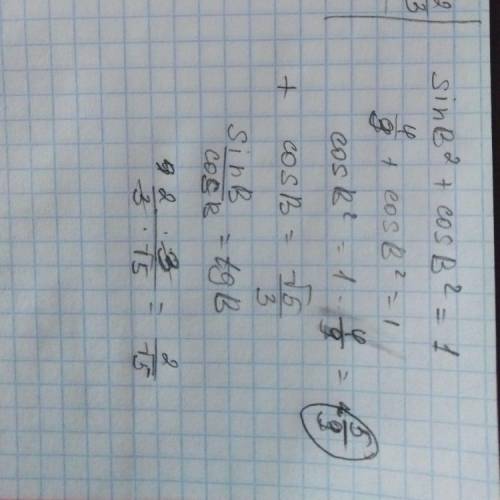 2/3
sinB² + cosB² = 1
4/9 + cosB² = 1
cosB² = 1 - 4/9 = 5/9
+ cosB = √5/3
sinB/cosB = tgB
2/3 · 3/√5 = 2/√5